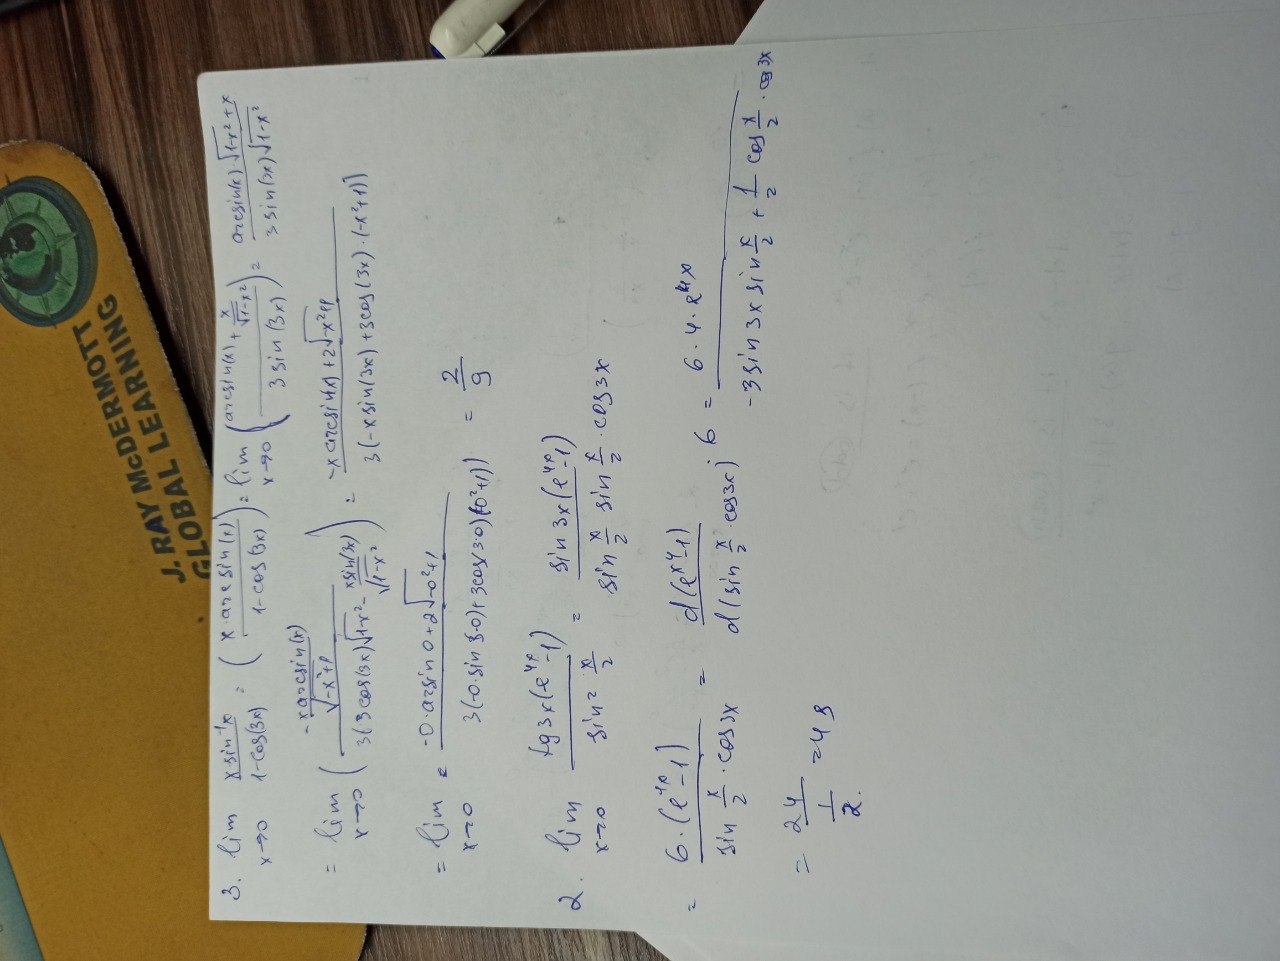 J. RAY McDERMOTT
GLOBAL LEARNING
3. lim x→0 x sin⁻¹x / 1-cos(3x) = ( x · arcsin(x) / 1-cos(3x) ) = lim x→0 ( arcsin(x) + x/√1-x² / 3 sin(3x) ) = arcsin(x) · √1-x² + x / 3 sin(3x) √1-x²
= lim x→0 ( -x arcsin(x) / √-x²+1 / 3(3cos(3x)√1-x² - x sin(3x)/√1-x² ) = -x arcsin(x) + 2√-x²+1 / 3(-x sin(3x) + 3cos(3x) · (-x²+1))
= lim x→0 = -0 · arsin 0 + 2√-0²+1 / 3(-0 · sin 3·0) + 3cos(3·0)(-0²+1)) = 2/9
2. lim x→0 tg3x(e^4x -1) / sin² x/2 = sin 3x (e^4x -1) / sin x/2 sin x/2 · cos3x
= 6 · (e^4x -1) / sin x/2 · cos3x = d(e^x4 -1) / d(sin x/2 · cos3x) · 6 = 6 · 4 · e^4x / -3 sin 3x sin x/2 + 1/2 cos x/2 · cos 3x
= 24 / 1/2. = 48